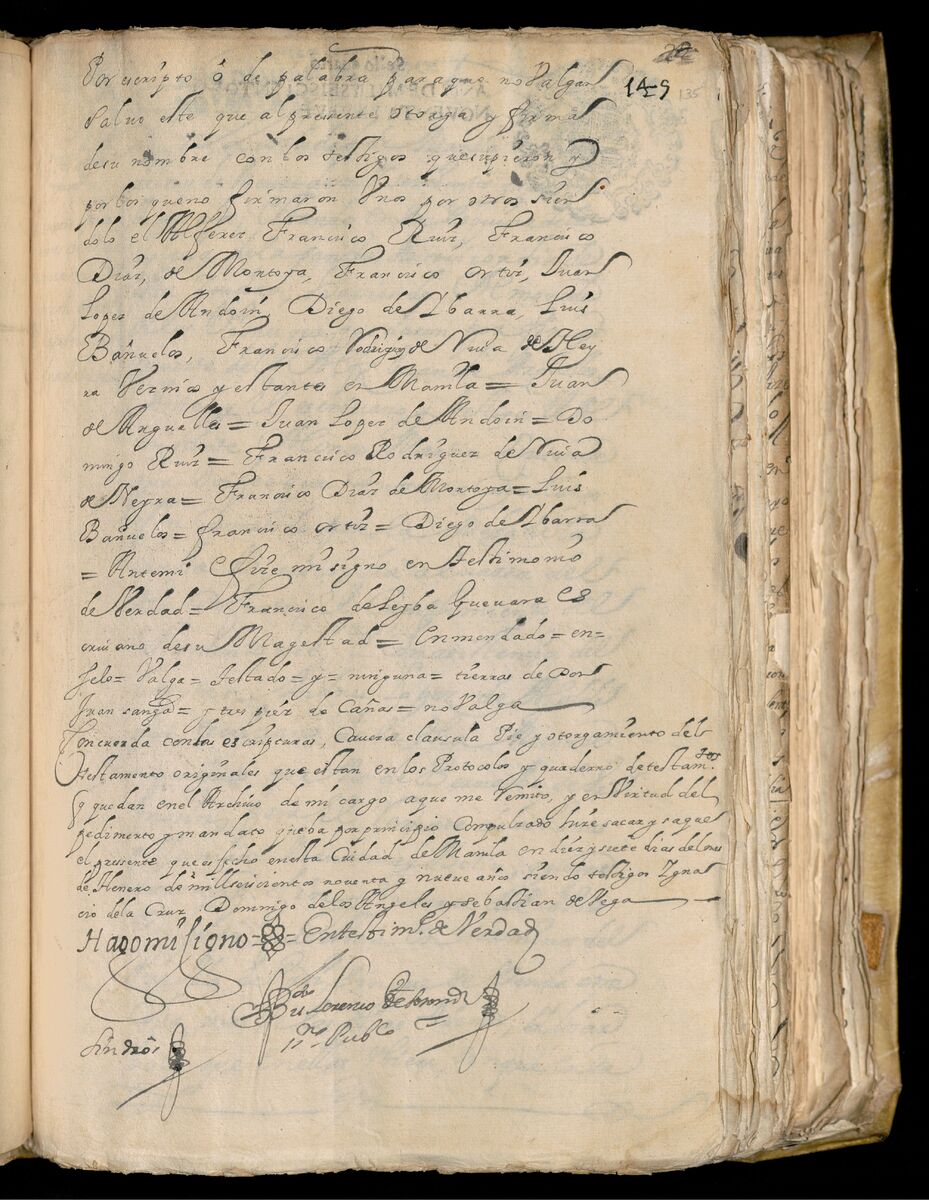 149
135
Por escripto ó de palabra para que no Valgan
Salvo este que al pressente otorga y firma
de su nombre con los testigos que supieron y
por los que no firmaron Unos por otros sien
dolo el Alferez Francisco Ruiz, Francisco
Diaz, de Montoya, Francisco ortiz, Juan
Lopez de Andoin, Diego de Ibarra, Luis
Bañuelos, Francisco Rodriguez de Nuia de Ney
ra Vezinos y estantes en Manila = Juan
de Arguelles = Juan Lopez de Andoin = Do
mingo Ruiz = Francisco Rodriguez de Nuia
de Neyra = Francisco Diaz de Montoya = Luis
Bañuelos = francisco ortiz = Diego de Ibarra
= Antemi e fize mi signo en testimonio
de Verdad = Francisco de Leyba Gueuara es
criuano de su Magestad = enmendado = en =
selo = Valga = testado = y = ninguna = tierras de Don
Juan = y tres piez de Cañas = no Valga
Concuerda con las escripturas, Cauera clausula Pie y otorgamiento del
testamento originales que estan en los Protocolos y quaderno de testam.tos
q quedan en el Archiuo de mi cargo a que me Remito, y en Virtud del
pedimento y mandato que ba por principio Compulsado hize sacar y saque
el pressente que es fecho en esta Ciudad de Manila en diez y siete dias del mes
de Henero de mill seiscientos noventa y nueve años siendo testigos Ygna
cio de la Cruz, Domingo de los Angeles y Sebastian de Vega
Hago mi signo = = En testim.o de Verdad
Lorenzo
Pubco